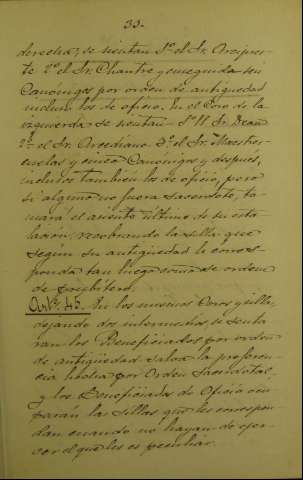 33.
derecha, se sientan 1º el Sr. Arcipres-
te 2º el Sr. Chantre y enseguida seis
Canonigos por orden de antiguedad
inclusos los de oficio. En el Coro de la
izquierda se sientan 1º el Sr. Dean
2º el Sr. Arcediano 3º el Sr. Maestres-
cuelas y cinco Canonigos y despues,
inclusos tambien los de oficio, pero
si alguno no fuera Sacerdote, to-
mará el asiento último de su esta-
lación, recobrando la silla que
segun su antigüedad le corres-
ponda tan luego como se ordene
de Presbítero.
Artº 45. En los mismos Coros y sillas,
dejando dos intermedias, se senta-
ran los Beneficiados por orden
de antigüedad salva la preferen-
cia hecha por Orden Sacerdotal,
y los Beneficiados de Oficio ocu-
paran las sillas que les correspon-
dan cuando no hayan de ejer-
cer el que les es peculiar.